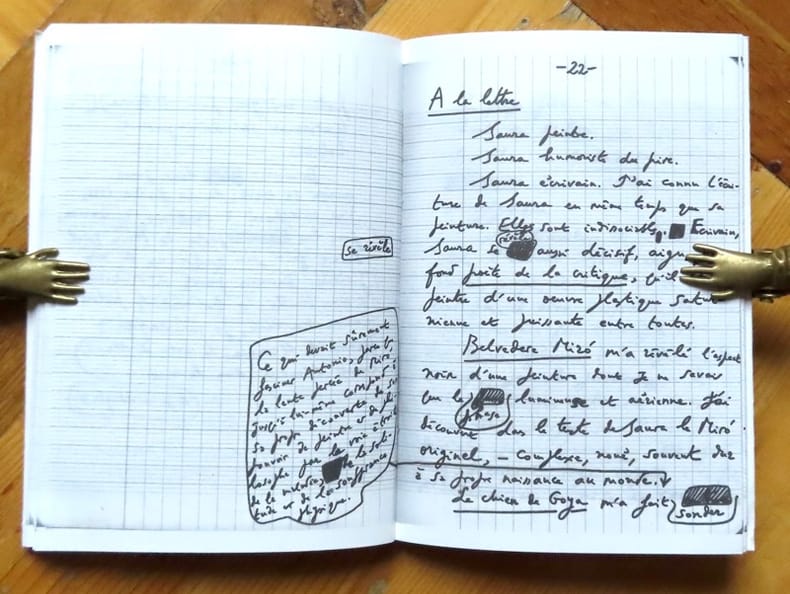 se révèle
Ce qui devait sûrement
fasciner Antonio, dans la
de lente percée de Miró,
jusqu'à lui-même correspond à
sa propre découverte de son
pouvoir de peintre et de phi-
losophe par la voie étroite
de la maladie, de la soli-
tude et de la souffrance
physique.
-22-
A la lettre
Saura peintre.
Saura humoriste du pire.
Saura écrivain. J'ai connu l'écri-
ture de Saura en même temps que sa
peinture. Elles sont indissociables. Ecrivain,
Saura se révèle aussi décisif, aigu
fond poète de la critique, qu'il
peintre d'une oeuvre plastique satur-
nienne et puissante entre toutes.
Belvedere Miró m'a révélé l'aspect
noir d'une peinture dont je ne savais
que la phase lumineuse et aérienne. J'ai
découvert dans le texte de Saura le Miró
originel, – complexe, noué, souvent dur
à sa propre naissance au monde.
Le chien de Goya m'a fait sonder